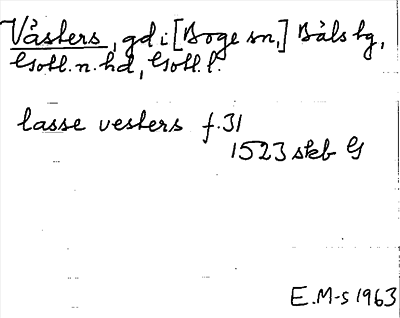 Västers, gd i [Boge sn,] Bäls tg,
Gotl. n. hd, Gotl. l.
lasse vesters f. 31
1523 skb G
E. M-s 1963